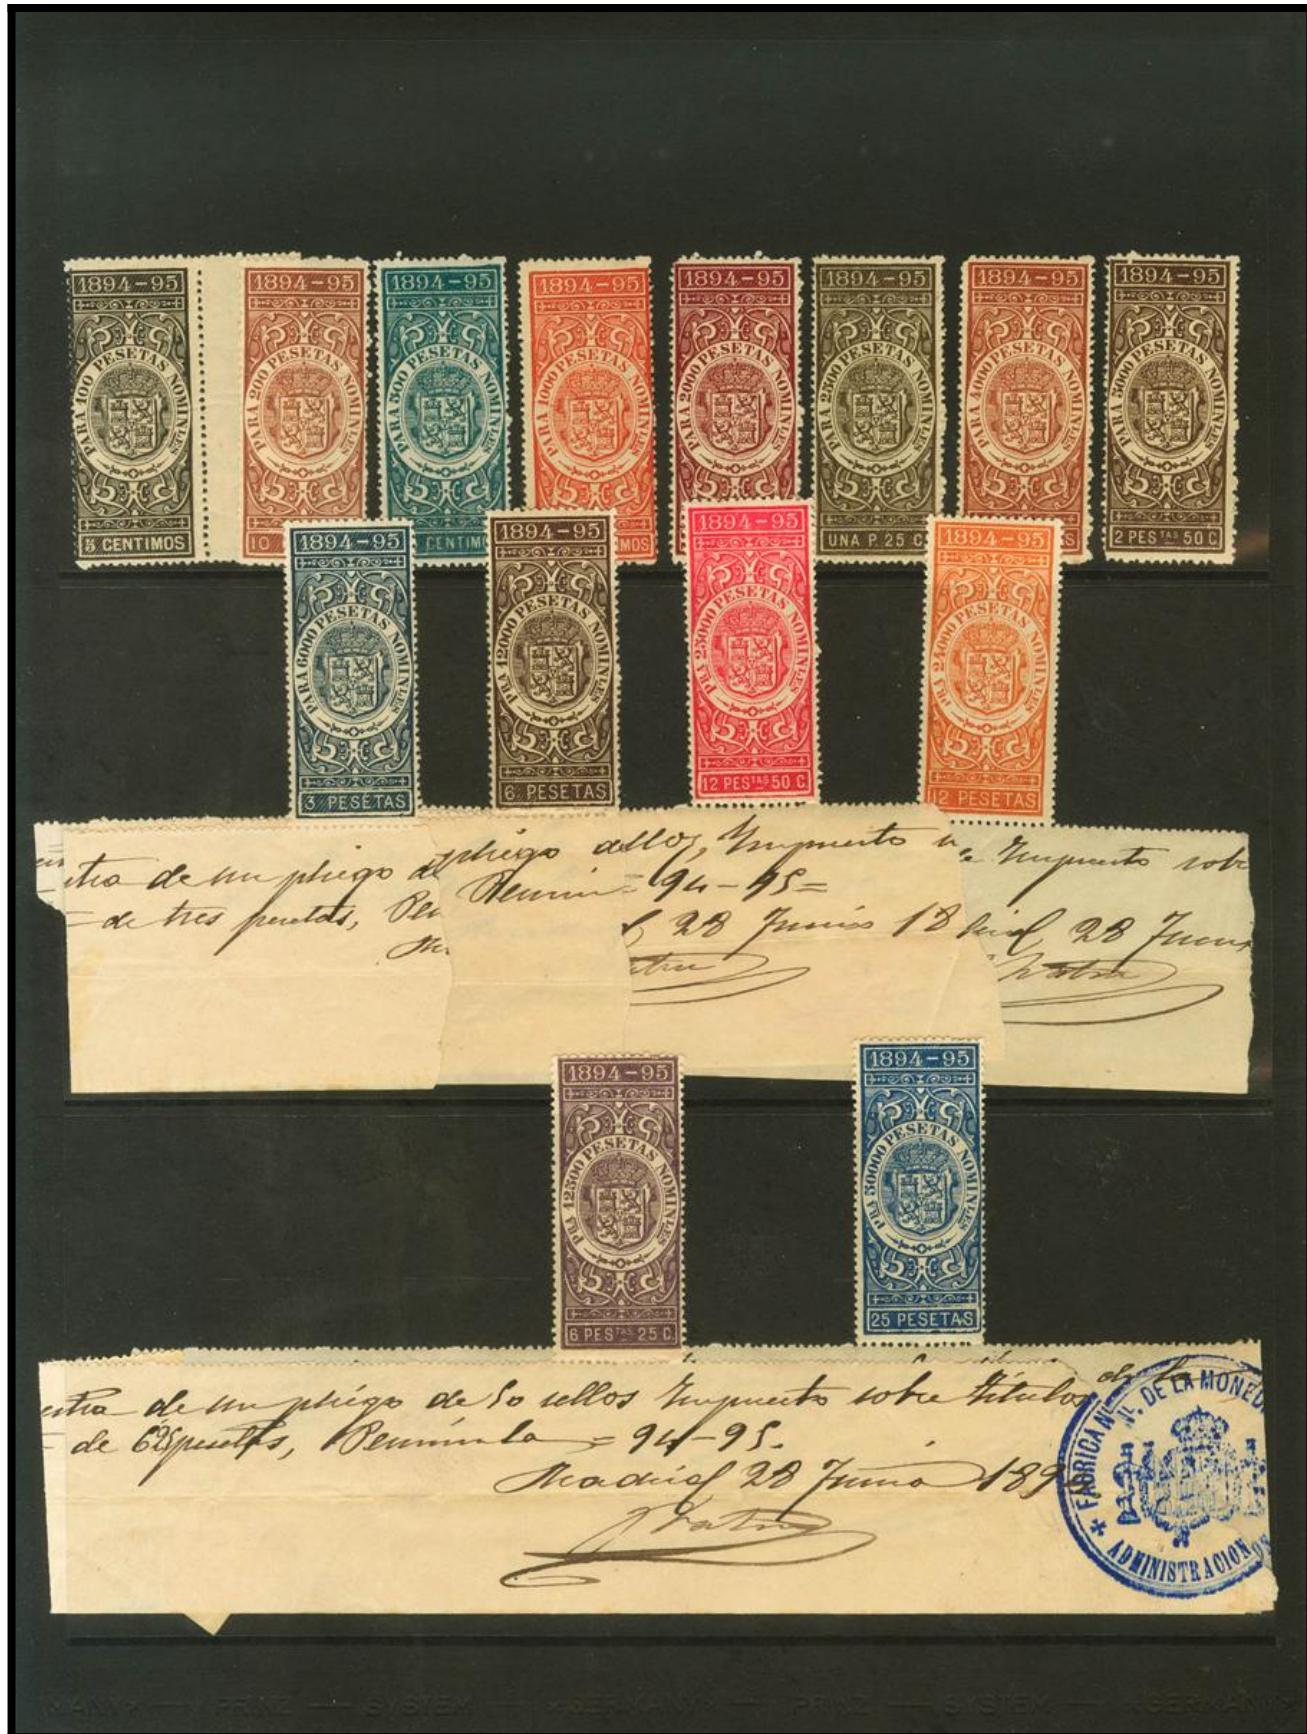 1894-95
PARA 100 PESETAS NOMINLES
5 CENTIMOS
1894-95
PARA 200 PESETAS NOMINLES
10
1894-95
PARA 500 PESETAS NOMINLES
CENTIM
1894-95
PARA 1000 PESETAS NOMINLES
MOS
1894-95
PARA 2000 PESETAS NOMINLES
1894-95
PARA 2500 PESETAS NOMINLES
UNA P. 25 C
1894-95
PARA 4000 PESETAS NOMINLES
S
1894-95
PARA 5000 PESETAS NOMINLES
2 PES TAS 50 C.
1894-95
PARA 6000 PESETAS NOMINLES
3 PESETAS
1894-95
PRA 12000 PESETAS NOMINLES
6 PESETAS
1894-95
PRA 25000 PESETAS NOMINLES
12 PES TAS 50 C
1894-95
PRA 24000 PESETAS NOMINLES
12 PESETAS
tra de un pliego d
de tres pesetas, Pen
pliego Impuesto
Penin = 94-95 =
28 Junio 18
Impuesto sob
28 Juni
1894-95
PRA 12500 PESETAS NOMINLES
6 PES TAS 25 C.
1894-95
PRA 50000 PESETAS NOMINLES
25 PESETAS
tra de un pliego de 50 sellos Impuesto sobre títulos de la
de 6'25 pesetas, Península = 94-95.
Madrid 28 Junio 189
FABRICA NL. DE LA MONED
ADMINISTRACION
PRINZ SYSTEM GERMANY PRINZ SYSTEM GERMANY